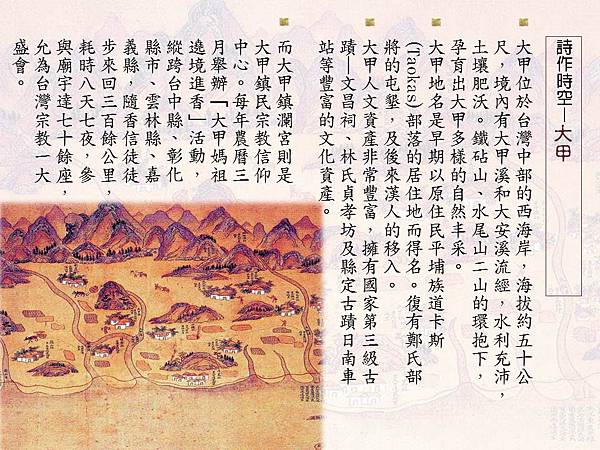 詩作時空—大甲
大甲位於台灣中部的西海岸，海拔約五十公
尺，境內有大甲溪和大安溪流經，水利充沛，
土壤肥沃。鐵砧山、水尾山二山的環抱下，
孕育出大甲多樣的自然丰采。
大甲地名是早期以原住民平埔族道卡斯
(Taokas)部落的居住地而得名。復有鄭氏部
將的屯墾，及後來漢人的移入。
大甲人文資產非常豐富，擁有國家第三級古
蹟—文昌祠、林氏貞孝坊及縣定古蹟日南車
站等豐富的文化資產。
而大甲鎮瀾宮則是
大甲鎮民宗教信仰
中心。每年農曆三
月舉辦「大甲媽祖
遶境進香」活動，
縱跨台中縣、彰化
縣市、雲林縣、嘉
義縣，隨香信徒徒
步來回三百餘公里，
耗時八天七夜，參
與廟宇達七十餘座，
允為台灣宗教一大
盛會。